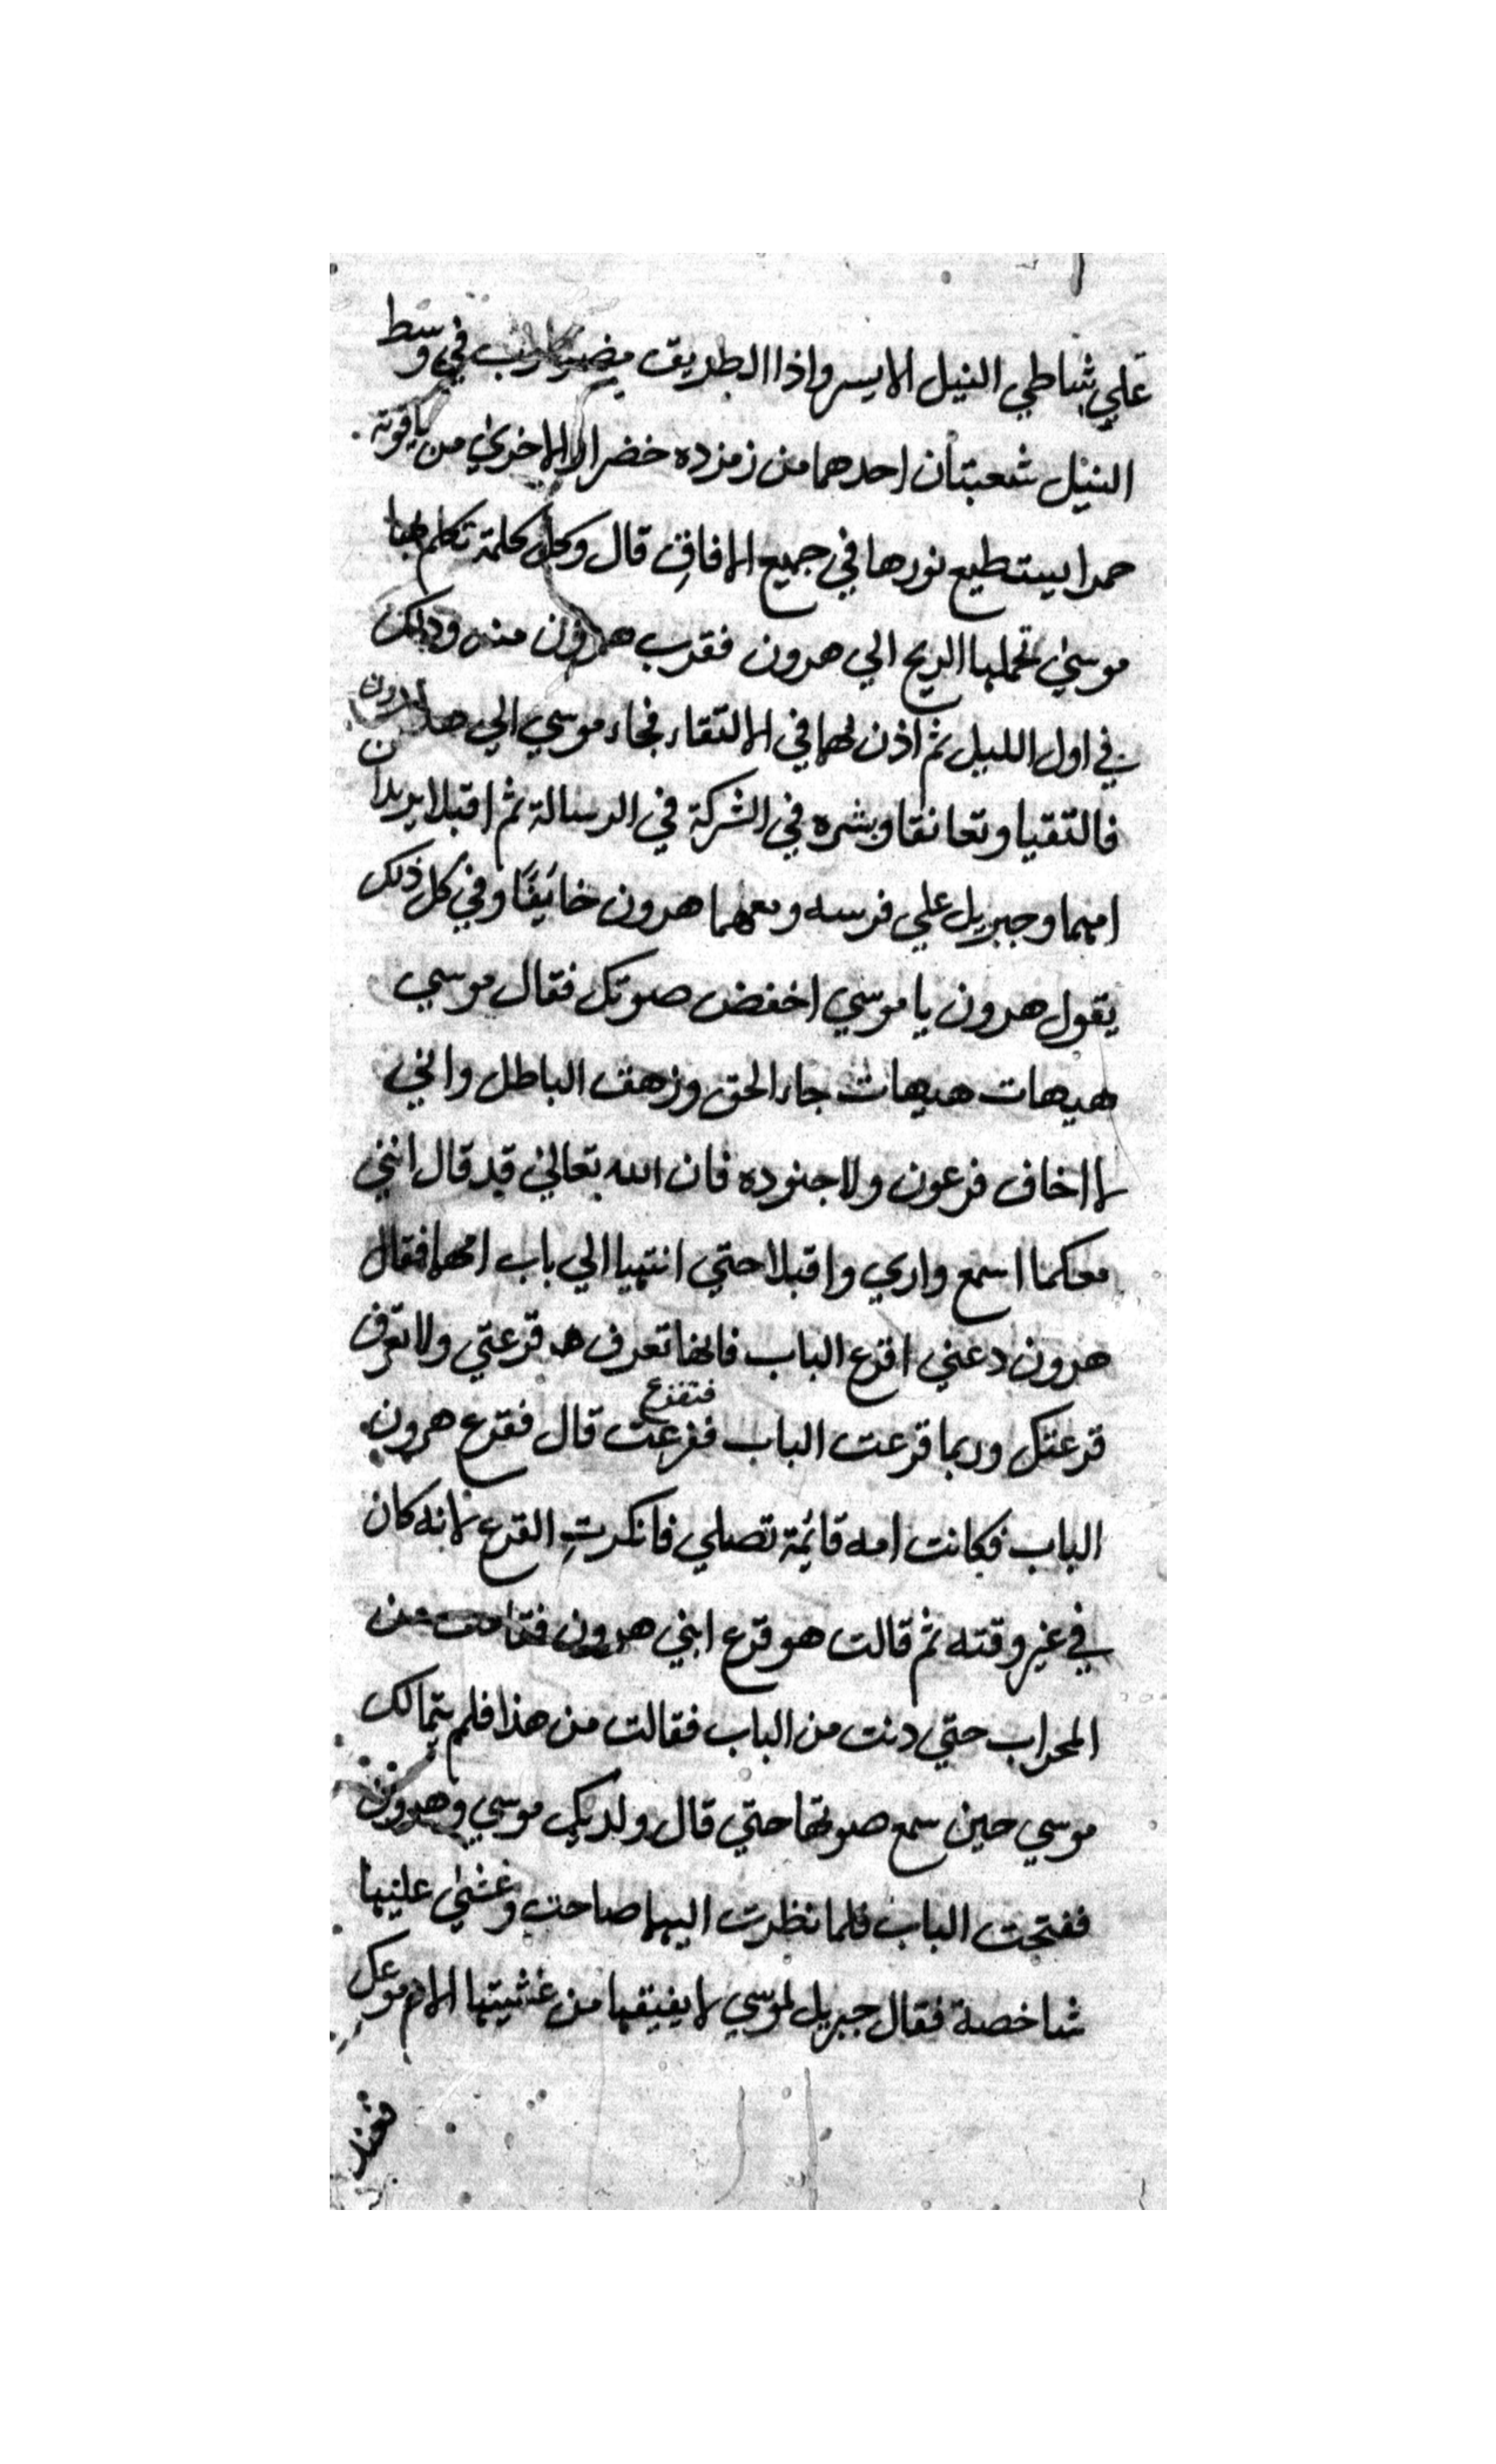 علي شاطي النيل الايسر واذا الطريق في وسط
النيل شعبتان احدهما من زمزده خضرا والاخري من ياقوته
حمرا يستطيع نورها في جميع الافاق قال وكل كلمة تكلم بها
موسي تحملها الريح الي هرون فقرب هرون منه وذلك
في اول الليل ثم اذن لهما في الالتقاء فجاء موسي الي هرون
فالتقيا وتعانقا وبشره في الشركة في الرسالة ثم اقبلا يريدان
امهما وجبريل علي فرسه ومعهما هرون خائفًا وفي كل ذلك
يقول هرون يا موسي اخفض صوتك فقال موسي
هيهات هيهات جاء الحق وزهق الباطل واني
لا اخاف فرعون ولا جنوده فان الله تعالي قد قال انني
معكما اسمع واري واقبلا حتي انتهيا الي باب امهما فقال
هرون دعني اقرع الباب فانها تعرف قرعتي ولا تعرف
قرعتك وربما قرعت الباب ففزعت فتفزع قال فقرع هرون
الباب فكانت امه قائمة تصلي فانكرت القرع لانه كان
في غير وقته ثم قالت هو قرع ابني هرون فقامت من
المحراب حتي دنت من الباب فقالت من هذا فلم يتمالك
موسي حين سمع صوتها حتي قال ولديك موسي وهرون
ففتحت الباب فلما نظرت اليهما صاحت وغشي عليها
شاخصة فقال جبريل لموسي لا يفيقها من غشيتها الا دموعك
فعند